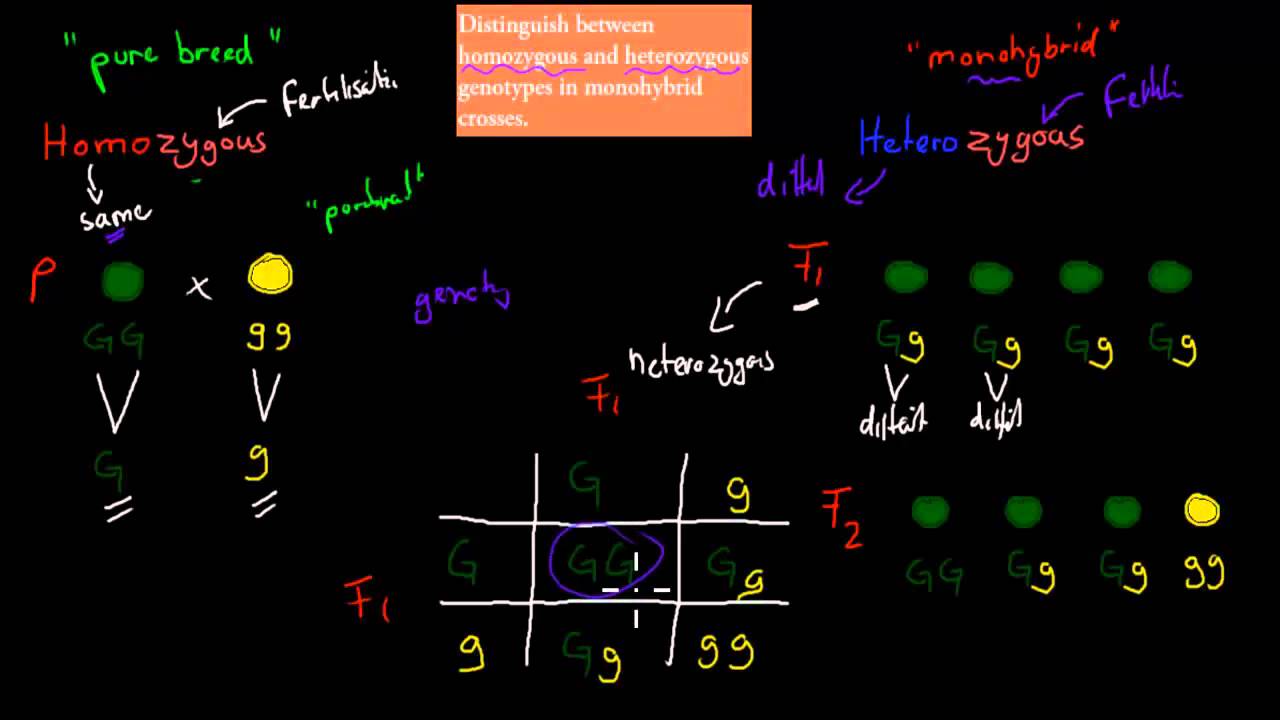 "pure breed"
Distinguish between
homozygous and heterozygous
genotypes in monohybrid
crosses.
"monohybrid"
Homozygous
Heterozygous
same
P
x
GG
gg
G
g
F1
Gg Gg Gg Gg
heterozygous
F1
G g
F1
G GG Gg
g Gg gg
F2
GG Gg Gg gg